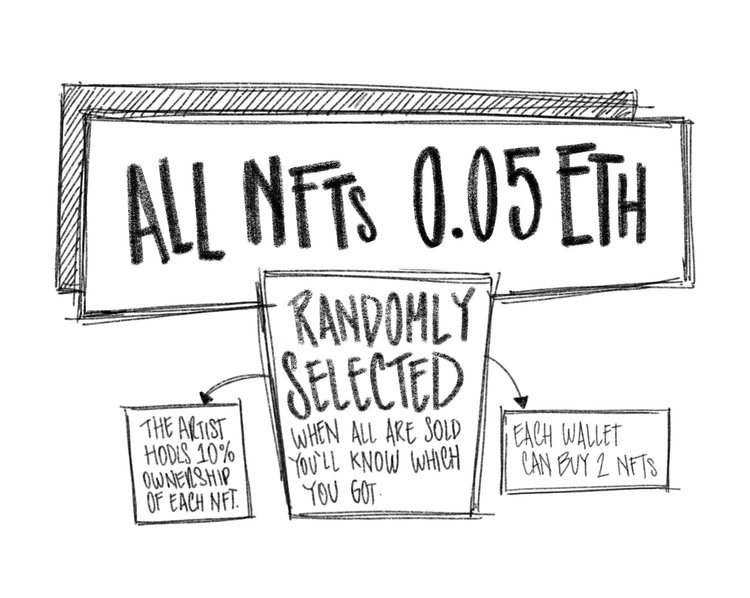 ALL NFTs 0.05 ETH
RANDOMLY
SELECTED
WHEN ALL ARE SOLD
YOU'LL KNOW WHICH
YOU GOT.
THE ARTIST
HODLS 10%
OWNERSHIP
OF EACH NFT.
EACH WALLET
CAN BUY 2 NFTs